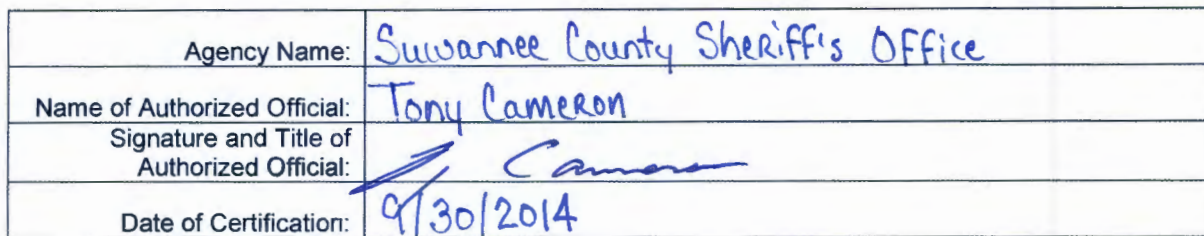 Agency Name: Suwannee County Sheriff's Office
Name of Authorized Official: Tony Cameron
Signature and Title of
Authorized Official: Cameron
Date of Certification: 9/30/2014